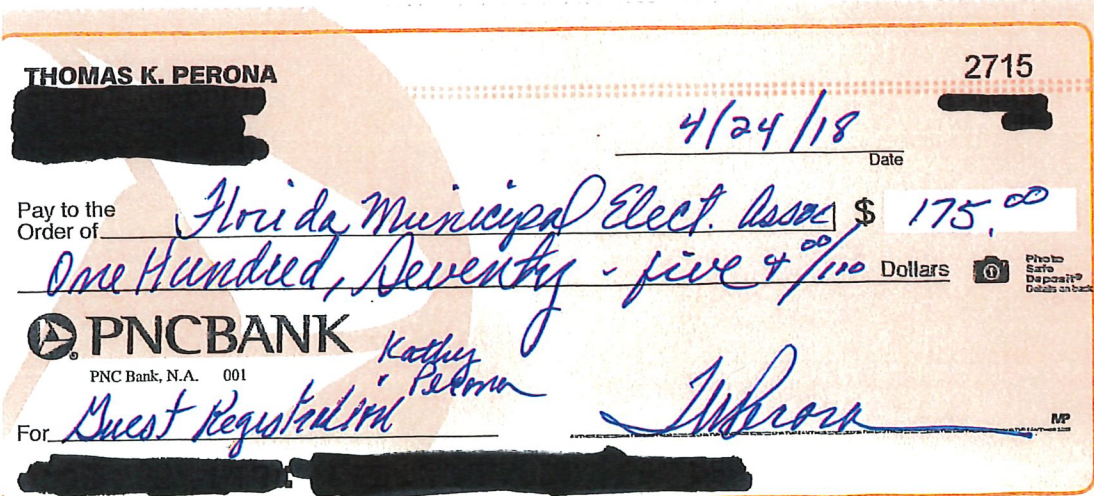 THOMAS K. PERONA
2715
4/24/18
Date
Pay to the
Order of Florida Municipal Elect. Assoc $ 175.00
One Hundred, Seventy - five & 00/100 Dollars
Photo
Safe
Deposit®
Details on back
PNCBANK
PNC Bank, N.A. 001
Kathy
Perona
For Guest Registration
TKPerona
MP